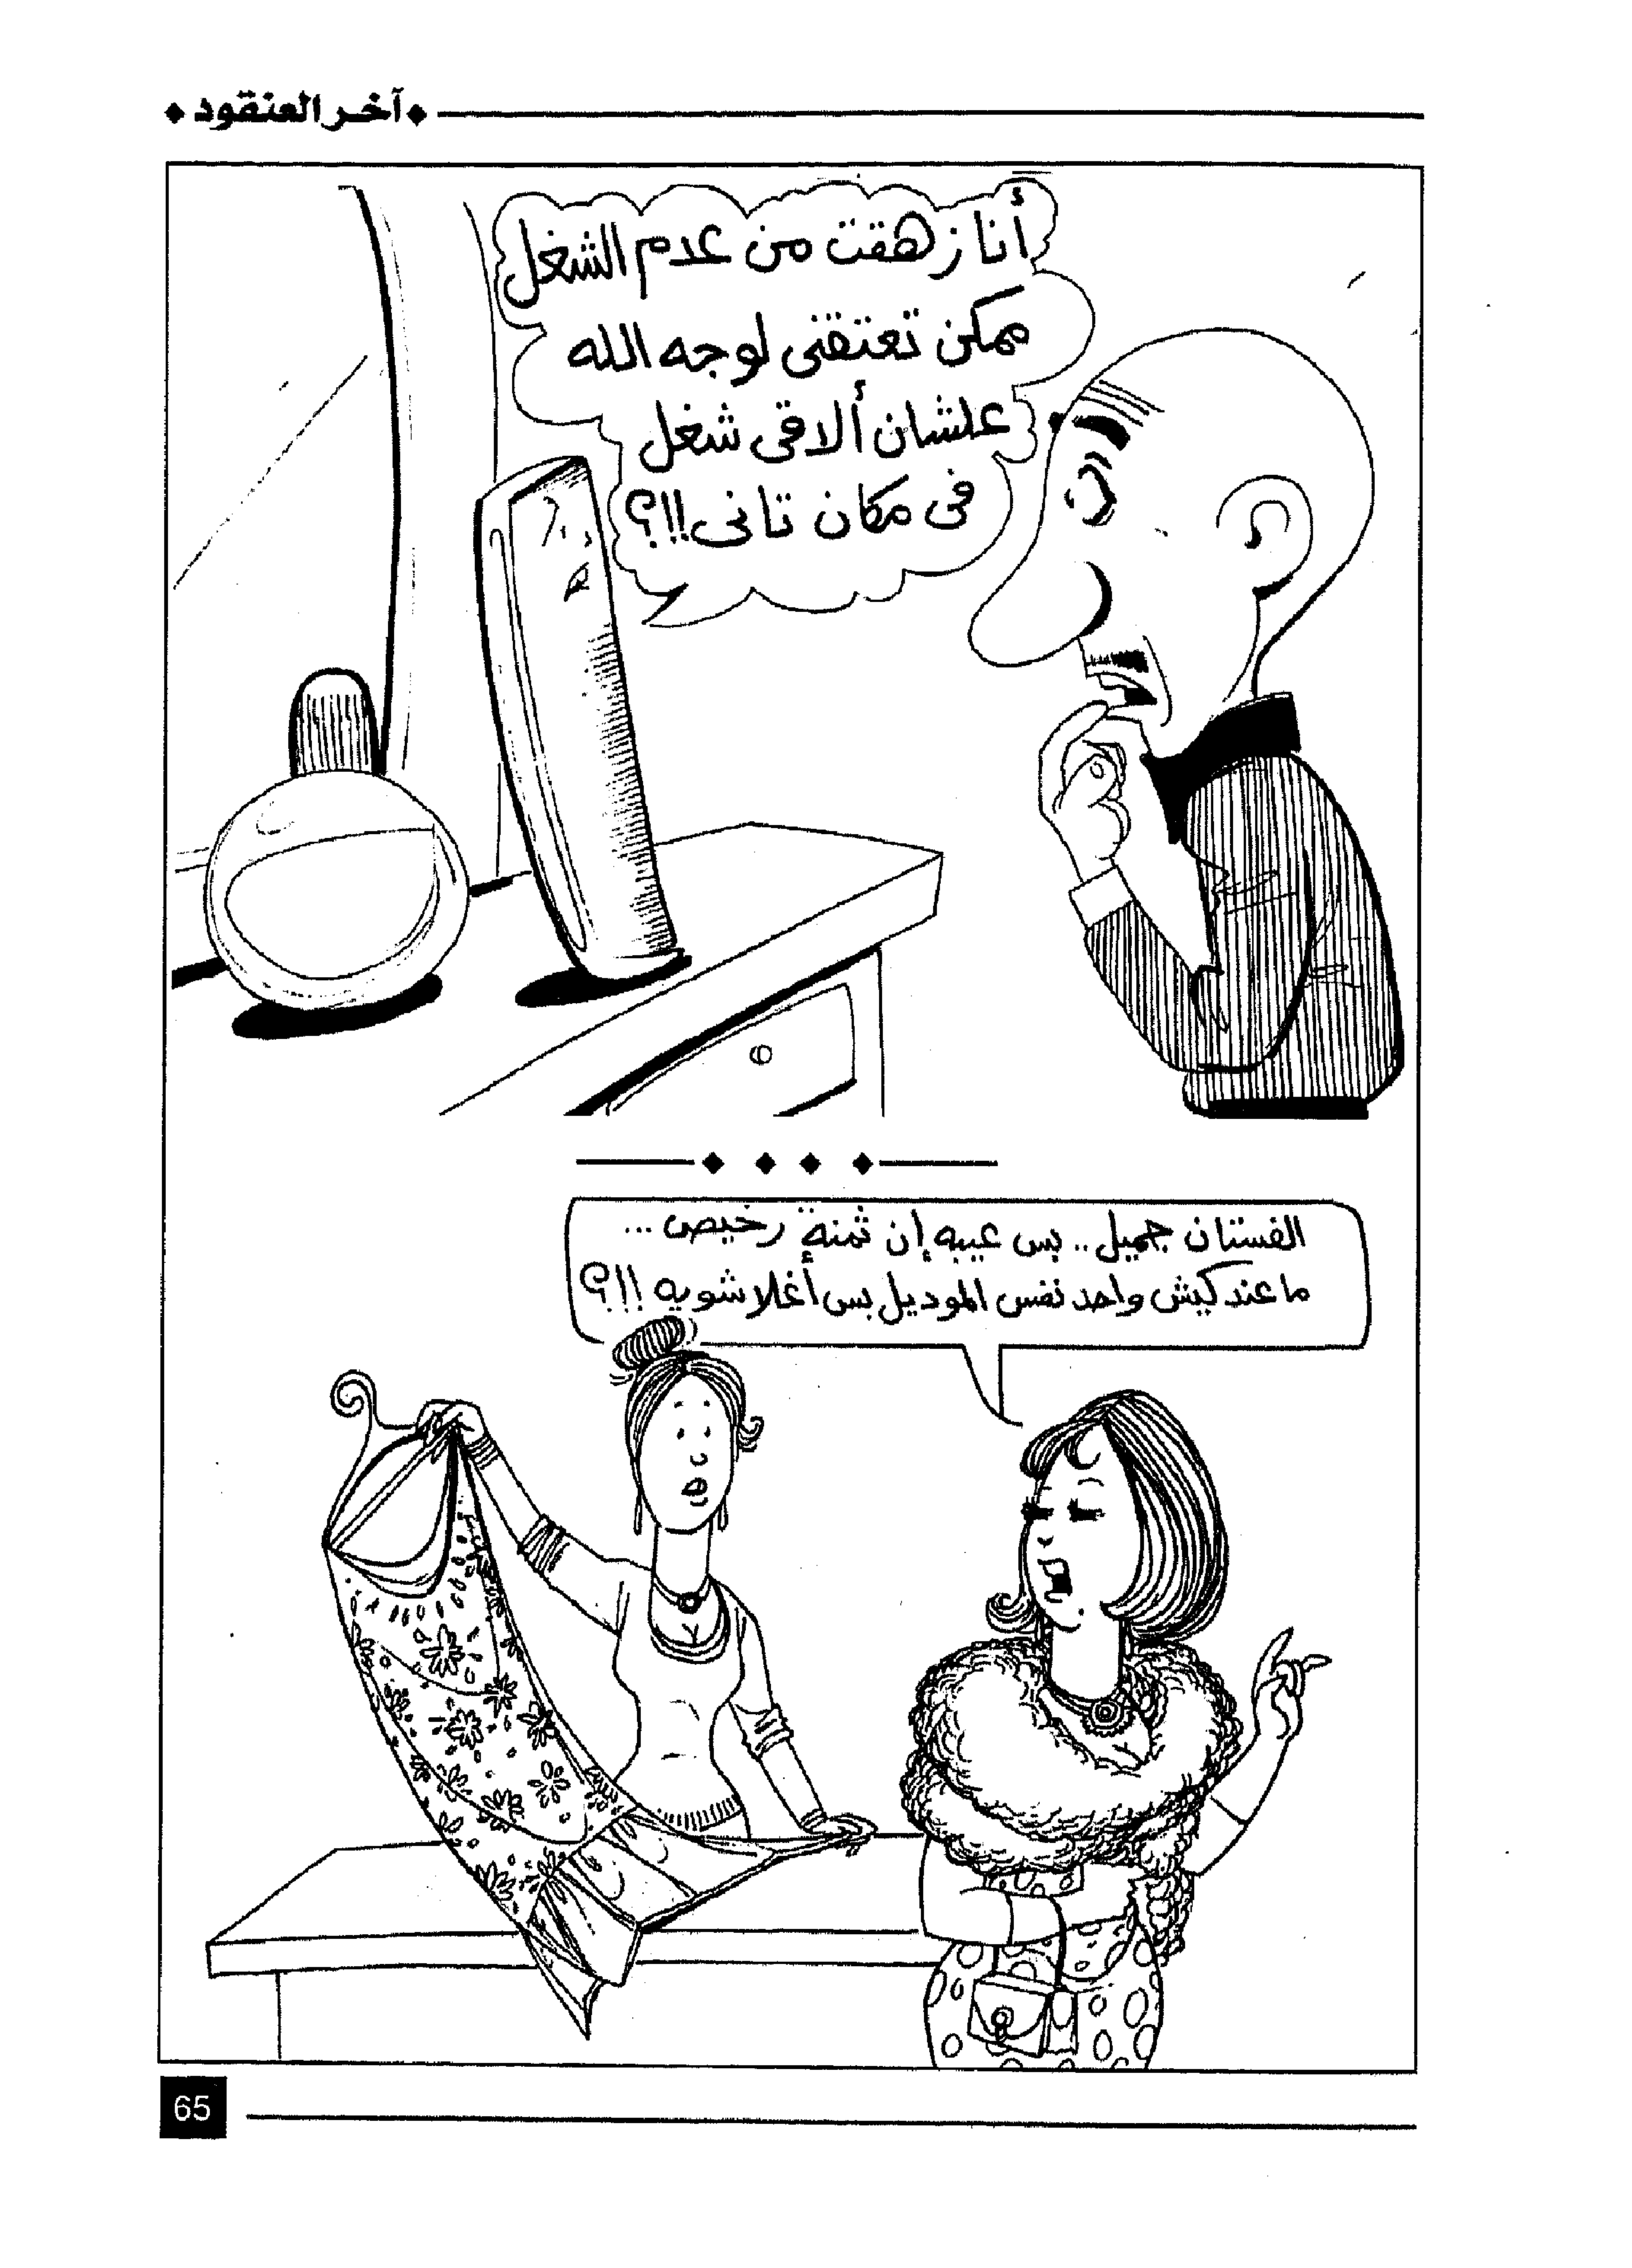 آخر العنقود
أنا زهقت من عدم الشغل
ممكن تعتقنى لوجه الله
علشان ألاقى شغل
فى مكان تانى!!؟
الفستان جميل.. بس عيبه إن ثمنه رخيص...
ما عندكيش واحد نفس الموديل بس أغلا شويه !!؟
65